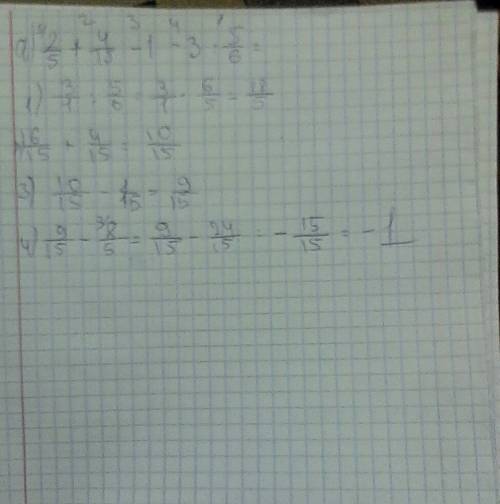 2/5 + 4/15 - 1 - 3 : 5/6 =
1) 3/1 : 5/6 = 3/1 · 6/5 = 18/5
6/15 + 4/15 = 10/15
3) 10/15 - 1/15 = 9/15
4) 9/15 - 8/5 = 9/15 - 24/15 = - 15/15 = - 1